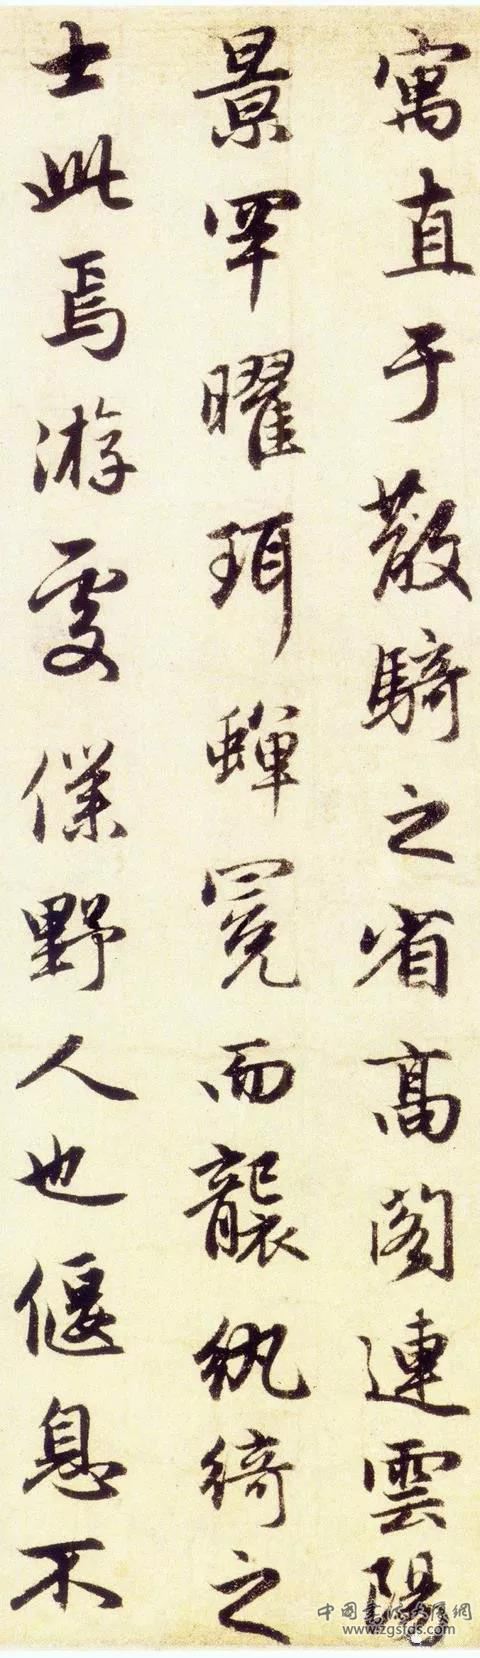 寓直于散騎之省高閣連雲陽
景罕曜珥蟬冕而襲紈綺之
士此焉游處僕野人也偃息不
中國書法大展網
www.zgsfds.com